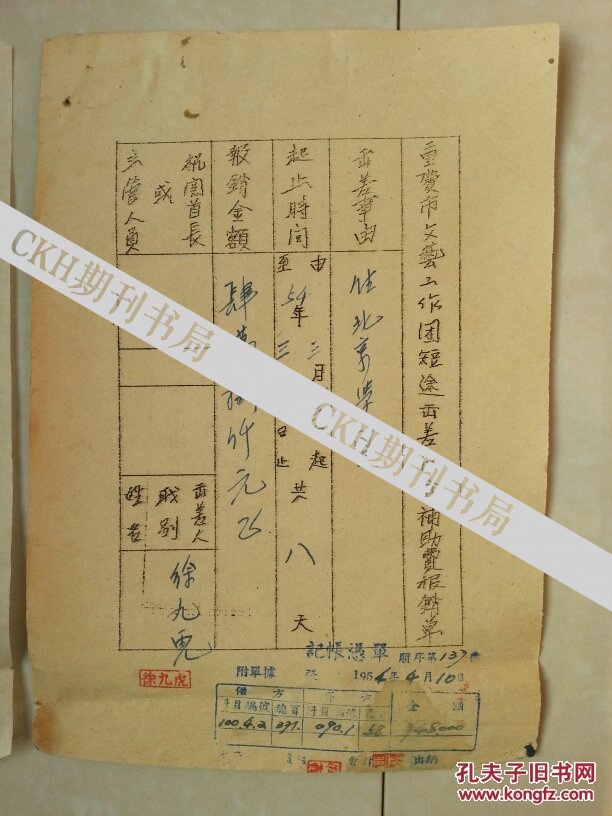 重慶市文藝工作团短途出差
補助費报銷单
出差事由
往北京
起止時間
由
54年三月
起
至
三
日止
共八天
报銷金額
肆萬捌仟元正
机関首長
或
主管人員
出差人
职别
姓名
徐九虎
記帳憑單
順序第137號
附單據
張
1954年4月10日
借方
金額
科目編號
總頁
100.4.2
397.
090.1
58
¥48000
出納
徐九虎
CKH期刊书局
CKH期刊书局
孔夫子旧书网
www.kongfz.com